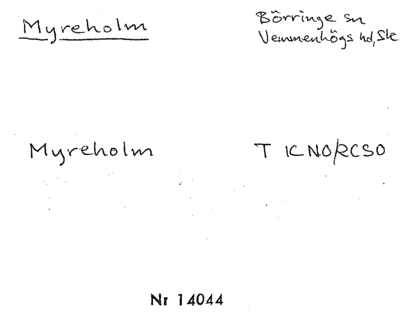 Myreholm
Börringe sn
Vemmenhögs hd, Sk
Myreholm
T 1C NO/2C SO
Nr 14044